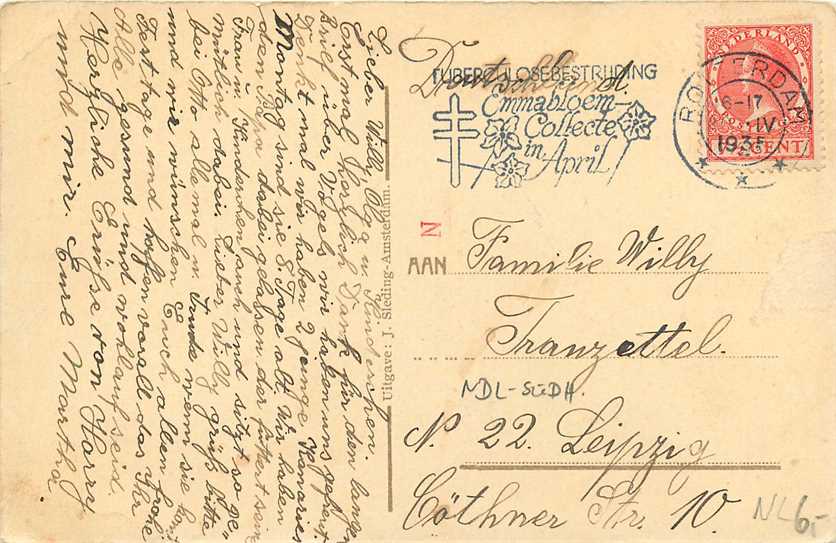 Lieber Willy Olga u. Kinderchen.
Erst mal herzlich Dank für den langen
Brief über Vogels wir haben uns gefreut.
Denkt mal wir haben 2 junge Kanarien
Montag sind sie 8. Tage alt. Wir haben
den Papa dabei gelassen der füttert sein
Frau u. Kinderchen auch und sitzt so ge=
mütlich dabei. Lieber Willy grüß bitte
bei Otto alle mal u. Trude wenn sie
und wir wünschen Euch allen
Festtage und hoffen vorall das Ihr
Alle gesund und wohlauf seid.
Herzliche Grüße von Harry
und mir. Eure Martha.
Uitgave: J. Sleding-Amsterdam.
TUBERCULOSEBESTRIJDING
Emmabloem-
Collecte
in April
Deutschland.
NEDERLAND
CENT
ROTTERDAM
6-17
IV
193
N
AAN Familie Willy
Franzettel.
NDL-SÜDH.
N. 22. Leipzig
Cöthner Str. 10.
NL 6,-